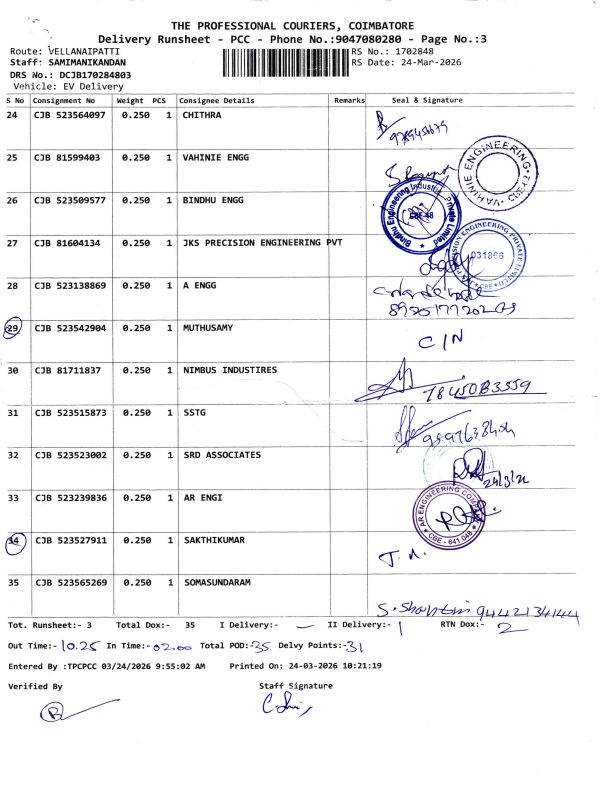 THE PROFESSIONAL COURIERS, COIMBATORE
Delivery Runsheet - PCC - Phone No.:9047080280 - Page No.:3
Route: VELLANAIPATTI RS No.: 1702848
Staff: SAMIMANIKANDAN RS Date: 24-Mar-2026
DRS No.: DCJB170284803
Vehicle: EV Delivery
S No Consignment No Weight PCS Consignee Details Remarks Seal & Signature
24 CJB 523564097 0.250 1 CHITHRA
25 CJB 81599403 0.250 1 VAHINIE ENGG
VAHINIE ENGINEERING
26 CJB 523509577 0.250 1 BINDHU ENGG
Bindhu Engineering Industries Private Limited
CBE-48
27 CJB 81604134 0.250 1 JKS PRECISION ENGINEERING PVT
JKS PRECISION ENGINEERING PRIVATE LIMITED
CBE
28 CJB 523138869 0.250 1 A ENGG
29 CJB 523542904 0.250 1 MUTHUSAMY
C/N
30 CJB 81711837 0.250 1 NIMBUS INDUSTIRES
31 CJB 523515873 0.250 1 SSTG
32 CJB 523523002 0.250 1 SRD ASSOCIATES
33 CJB 523239836 0.250 1 AR ENGI
AR ENGINEERING
CBE - 641 048
34 CJB 523527911 0.250 1 SAKTHIKUMAR
35 CJB 523565269 0.250 1 SOMASUNDARAM
Tot. Runsheet:- 3 Total Dox:- 35 I Delivery:- — II Delivery:- 1 RTN Dox:- 2
Out Time:- 10.25 In Time:- 02.00 Total POD:- 35 Delvy Points:- 31
Entered By :TPCPCC 03/24/2026 9:55:02 AM Printed On: 24-03-2026 10:21:19
Verified By Staff Signature